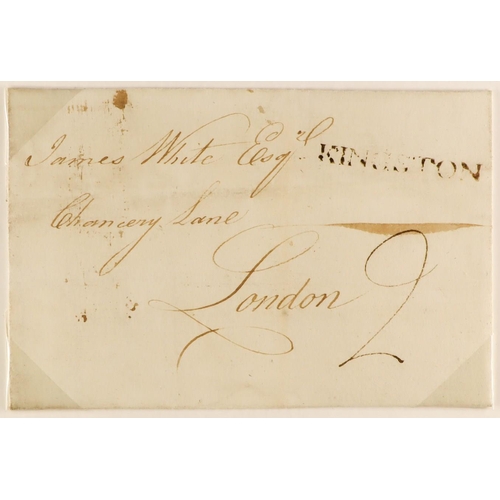 James White Esqre KINGSTON
Chancery Lane
London 2